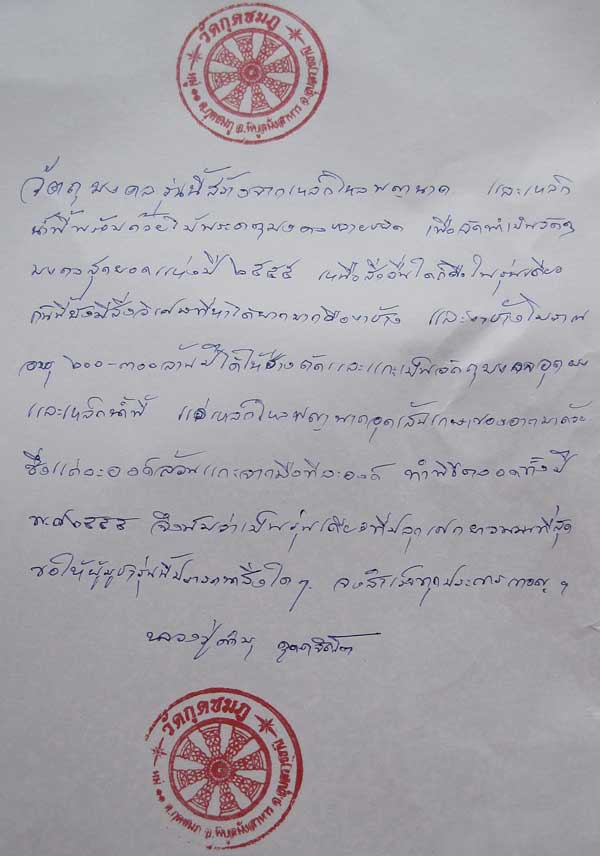 วัดกุดชมภู
หมู่ ๑๑ ต.กุดชมภู อ.พิบูลมังสาหาร จ.อุบลราชธานี
วัตถุมงคลรุ่นนี้สร้างจากเหล็กไหลพญานาค และเหล็ก
น้ำพี้พร้อมด้วย พระธาตุมงคลหลายชนิด เพื่อจัดทำเป็นวัตถุ
มงคลสุดยอดแห่งปี ๒๕๕๕ เหนือสิ่งอื่นใดก็คือในรุ่นเดียว
กันนี้ยังมีสิ่งวิเศษที่หาได้ยากมากคืองาช้าง และงาช้างโบราณ
อายุ ๒๐๐-๓๐๐ล้านปีได้ให้ช่างตัดและแกะเป็นวัตถุมงคล
และเหล็กน้ำพี้ แร่เหล็กไหลพญานาคอุดเส้นเกษาของอาตมาด้วย
ซึ่งแต่ละองค์ล้วนแกะจากมือทีละองค์ ทำพิธีตลอดทั้งปี
พ.ศ.๒๕๕๕ จึงนับว่าเป็นรุ่นเดียวที่ปลุกเสกยาวนานที่สุด
ขอให้ผู้บูชารุ่นนี้ปรารถนาสิ่งใดๆ จงสำเร็จทุกประการเทอญ ฯ
หลวงปู่คำบุ คุตฺตจิตฺโต
วัดกุดชมภู
หมู่ ๑๑ ต.กุดชมภู อ.พิบูลมังสาหาร จ.อุบลราชธานี